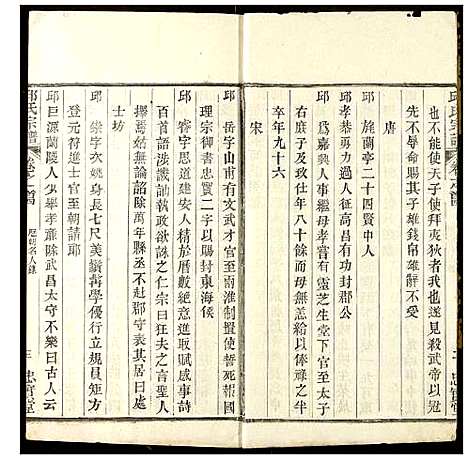 也不能使天子使拜夷狄者我也殺武帝以冠
先不辱命賜其子雄錢帛雄辭不受
唐
邱旄蘭亭二十四賢中人
邱孝恭勇力過人征高昌有功封郡公
邱爲嘉興人事繼母孝嘗有靈芝生堂下官至太子
右庶子及致仕年八十餘而母無恙給俸祿之半
卒年九十六
宋
邱岳字山甫有文武才官至兩淮制置使誓死報國
理宗御書忠實二字以賜封東海侯
邱睿字思道建安人精於曆數絶意進取賦感事詩
百首語涉譏訕執政欲誅之仁宗曰狂夫之言聖人
擇焉無論詔除萬年縣丞不赴郡守表其居曰處
士坊
邱崇字衣姚身長七尺美鬚髯學優行立規員矩方
登元符進士官至朝請耶
邱巨源蘭陵人少舉孝廉除武昌太守不樂曰古人云
邱氏宗譜
卷之首
歷朝名人錄
三
忠實堂